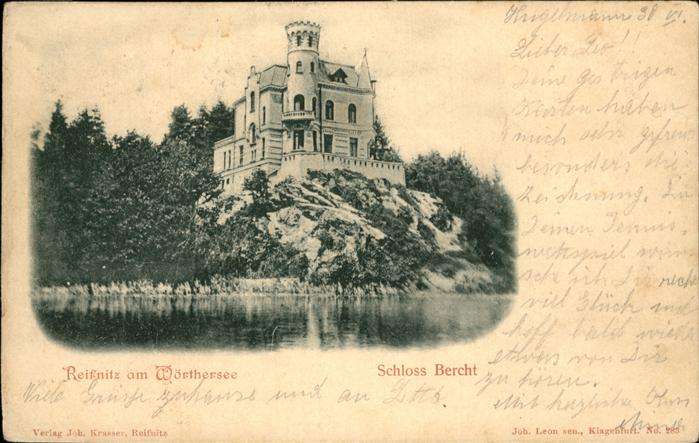 Lieber Leo!!
Deine gestrigen
Karten haben
mich sehr gefreut
besonders die
Zeichnung. Zu
Deinem Tennis-
wettspiel wün-
sche ich Dir recht
viel Glück und
hoffe bald wieder
etwas von Dir
zu hören.
Reifnitz am Wörthersee
Schloss Bercht
Viele Grüsse zuhause und an
Mit herzliche
Verlag Joh. Krasser, Reifnitz
Joh. Leon sen., Klagenfurt. No. 285